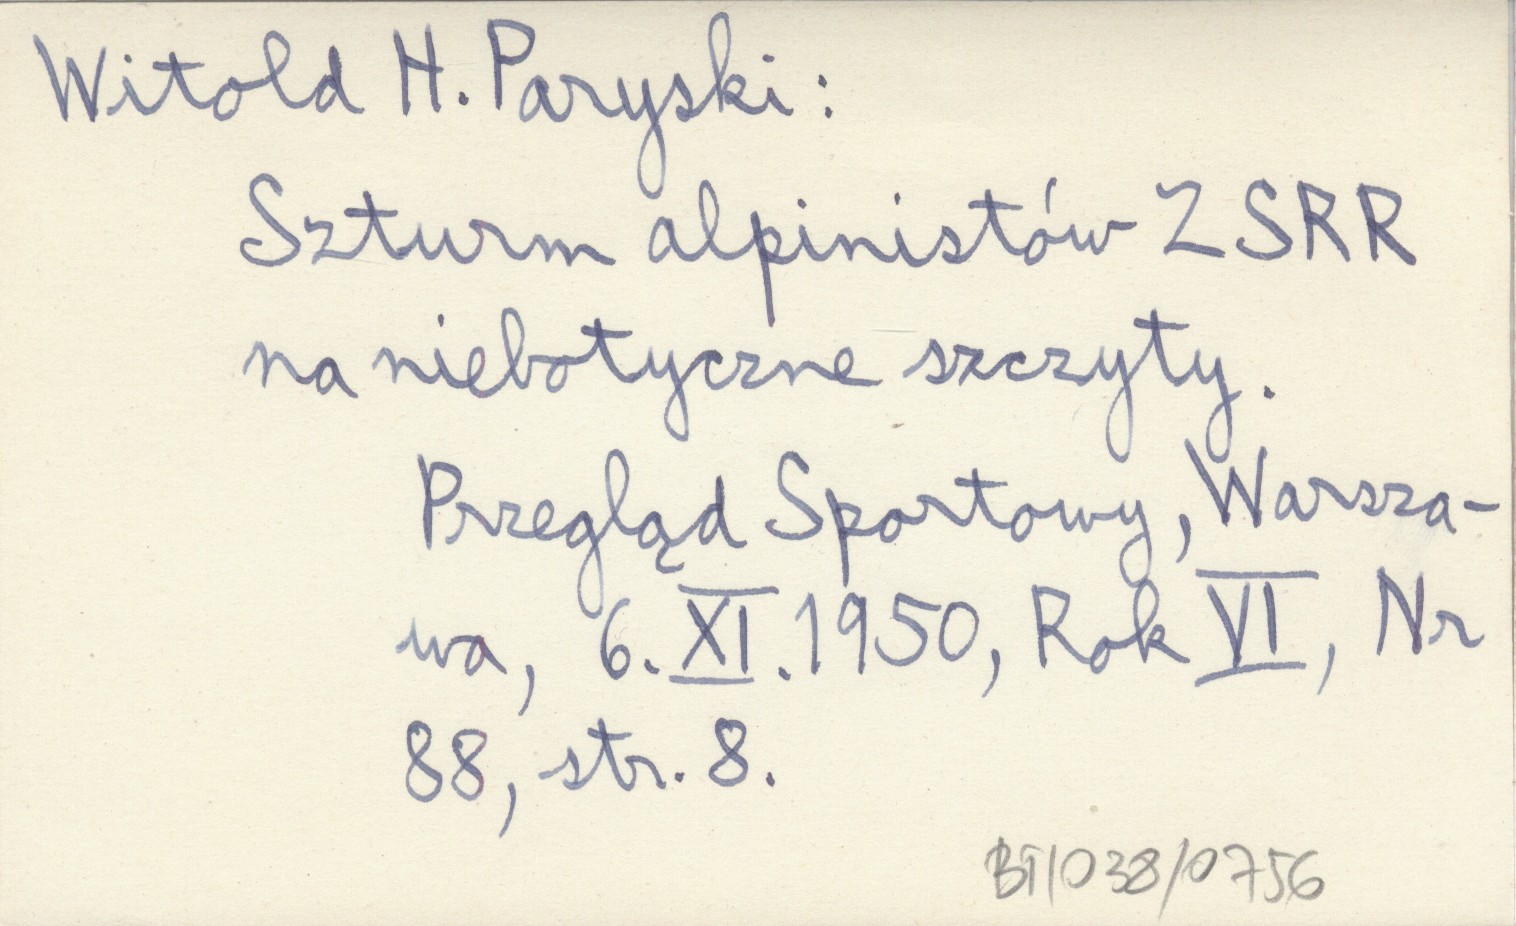 Witold H. Paryski:
Szturm alpinistów ZSRR
na niebotyczne szczyty.
Przegląd Sportowy, Warsza-
wa, 6. XI. 1950, Rok VI, Nr
88, str. 8.
BT/038/0756